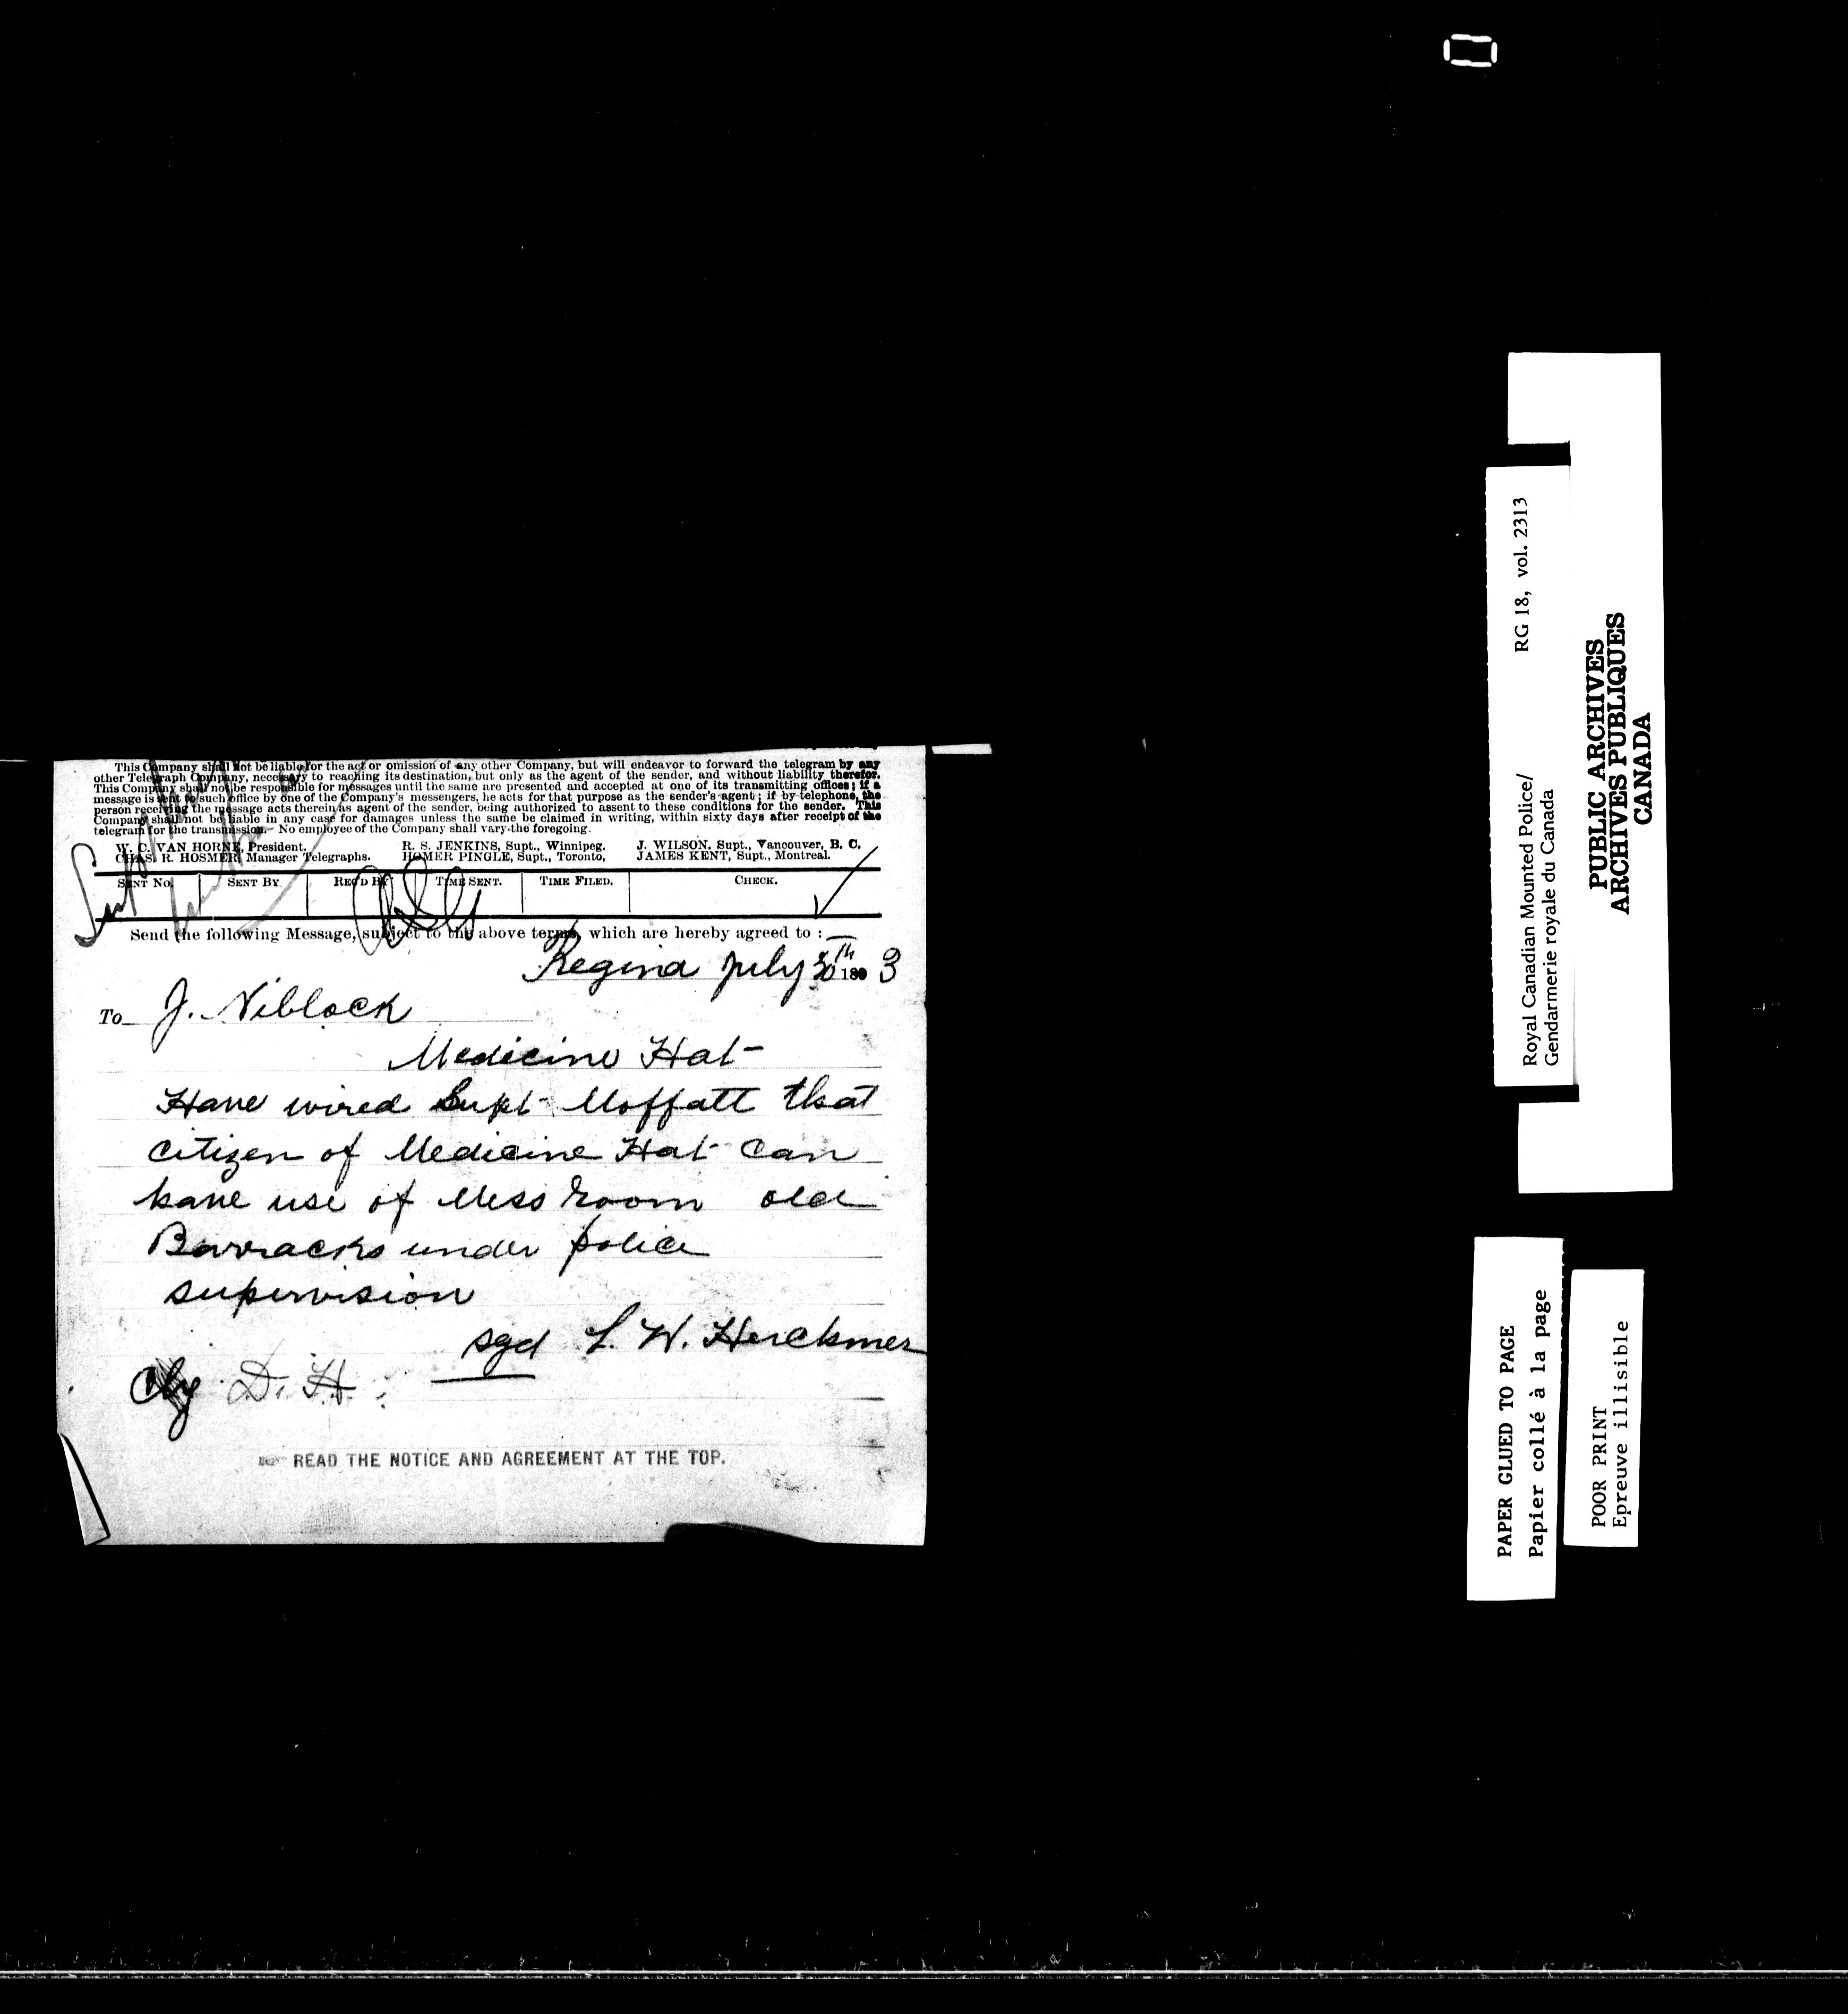 This Company shall not be liable for the act or omission of any other Company, but will endeavor to forward the telegram by any
other Telegraph Company, necessary to reaching its destination, but only as the agent of the sender, and without liability therefor.
This Company shall not be responsible for messages until the same are presented and accepted at one of its transmitting offices; if a
message is sent to such office by one of the Company's messengers, he acts for that purpose as the sender's agent; if by telephone, the
person receiving the message acts therein as agent of the sender, being authorized to assent to these conditions for the sender. This
Company shall not be liable in any case for damages unless the same be claimed in writing, within sixty days after receipt of the
telegram for the transmission. No employee of the Company shall vary the foregoing.
W. C. VAN HORNE, President. R. S. JENKINS, Supt., Winnipeg. J. WILSON, Supt., Vancouver, B. C.
CHAS. R. HOSMER, Manager Telegraphs. HOMER PINGLE, Supt., Toronto, JAMES KENT, Supt., Montreal.
SENT NO. SENT BY REC'D BY TIME SENT. TIME FILED. CHECK.
Send the following Message, subject to the above terms, which are hereby agreed to :
Regina July 30th 1893
To J. Niblock
Medicine Hat
Have wired Supt Moffatt that
citizen of Medicine Hat can
have use of Mess room old
Barracks under police
supervision
sgd L. W. Herchmer
Chg D. H.
READ THE NOTICE AND AGREEMENT AT THE TOP.
Royal Canadian Mounted Police/ RG 18, vol. 2313
Gendarmerie royale du Canada
PUBLIC ARCHIVES
ARCHIVES PUBLIQUES
CANADA
PAPER GLUED TO PAGE
Papier collé à la page
POOR PRINT
Epreuve illisible